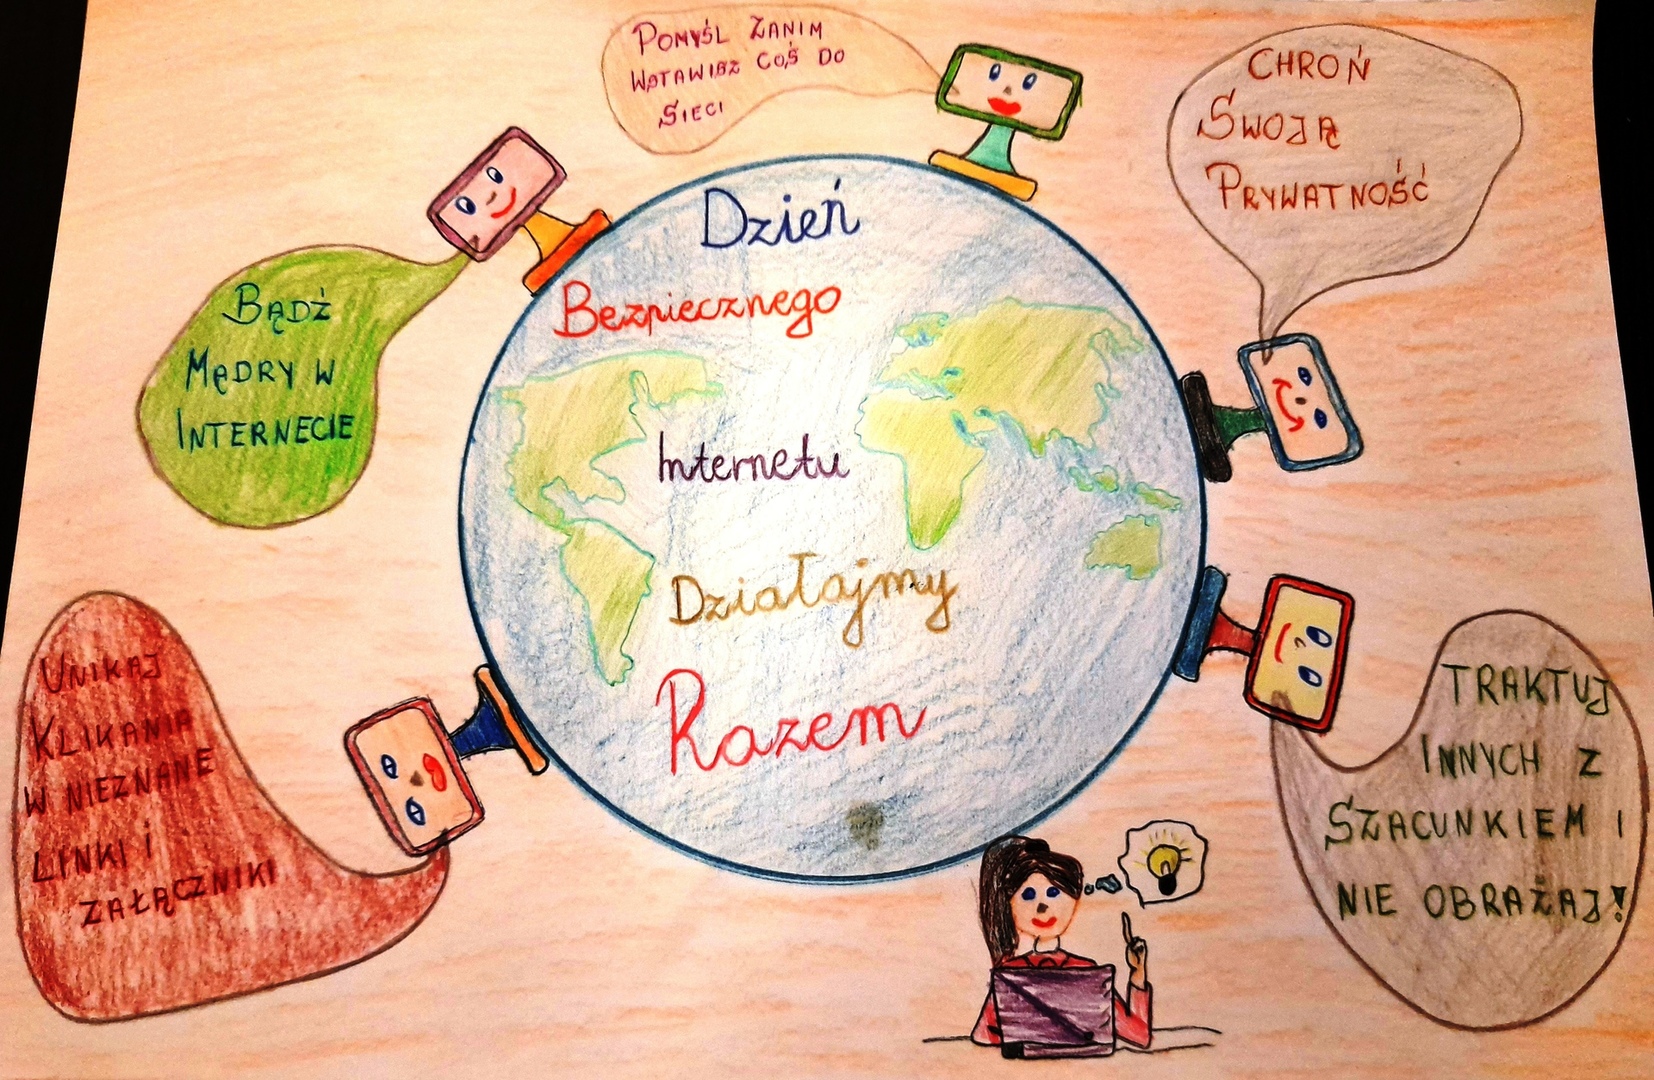 Pomyśl Zanim
Wstawisz Coś Do
Sieci
Chroń
Swoją
Prywatność
Bądź
Mędry w
Internecie
Dzień
Bezpiecznego
Internetu
Działajmy
Razem
Unikaj
Klikania
w nieznane
linki i
załączniki
Traktuj
Innych z
Szacunkiem i
nie obrażaj!